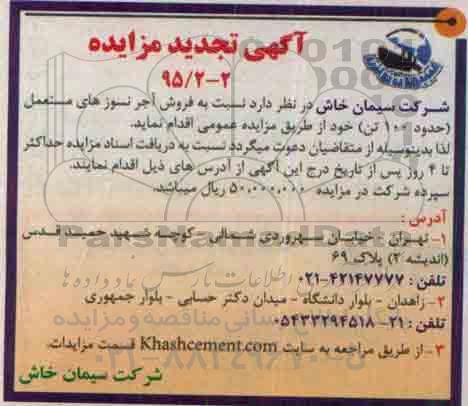 آگهی تجدید مزایده
۹۵/۲-۲
شرکت سیمان خاش در نظر دارد نسبت به فروش آجر نسوز های مستعمل
(حدود ۱۰۰ تن) خود از طریق مزایده عمومی اقدام نماید.
لذا بدینوسیله از متقاضیان دعوت میگردد نسبت به دریافت اسناد مزایده حداکثر
تا ۴ روز پس از تاریخ درج این آگهی از آدرس های ذیل اقدام نمایند.
سپرده شرکت در مزایده ۵۰،۰۰۰،۰۰۰ ریال میباشد.
آدرس :
۱- تهران - خیابان سهروردی شمالی - کوچه شهید حمید قدس
(اندیشه ۲) پلاک ۶۹
تلفن : ۴۲۱۴۷۷۷۷-۰۲۱
۲- زاهدان - بلوار دانشگاه - میدان دکتر حسابی - بلوار جمهوری
تلفن : ۲۱- ۰۵۴۳۳۲۹۴۵۱۸
۳- از طریق مراجعه به سایت Khashcement.com قسمت مزایدات.
شرکت سیمان خاش